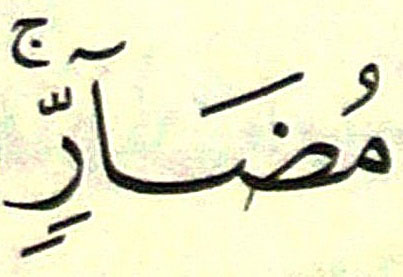 مُضَآرٍّ ۚ